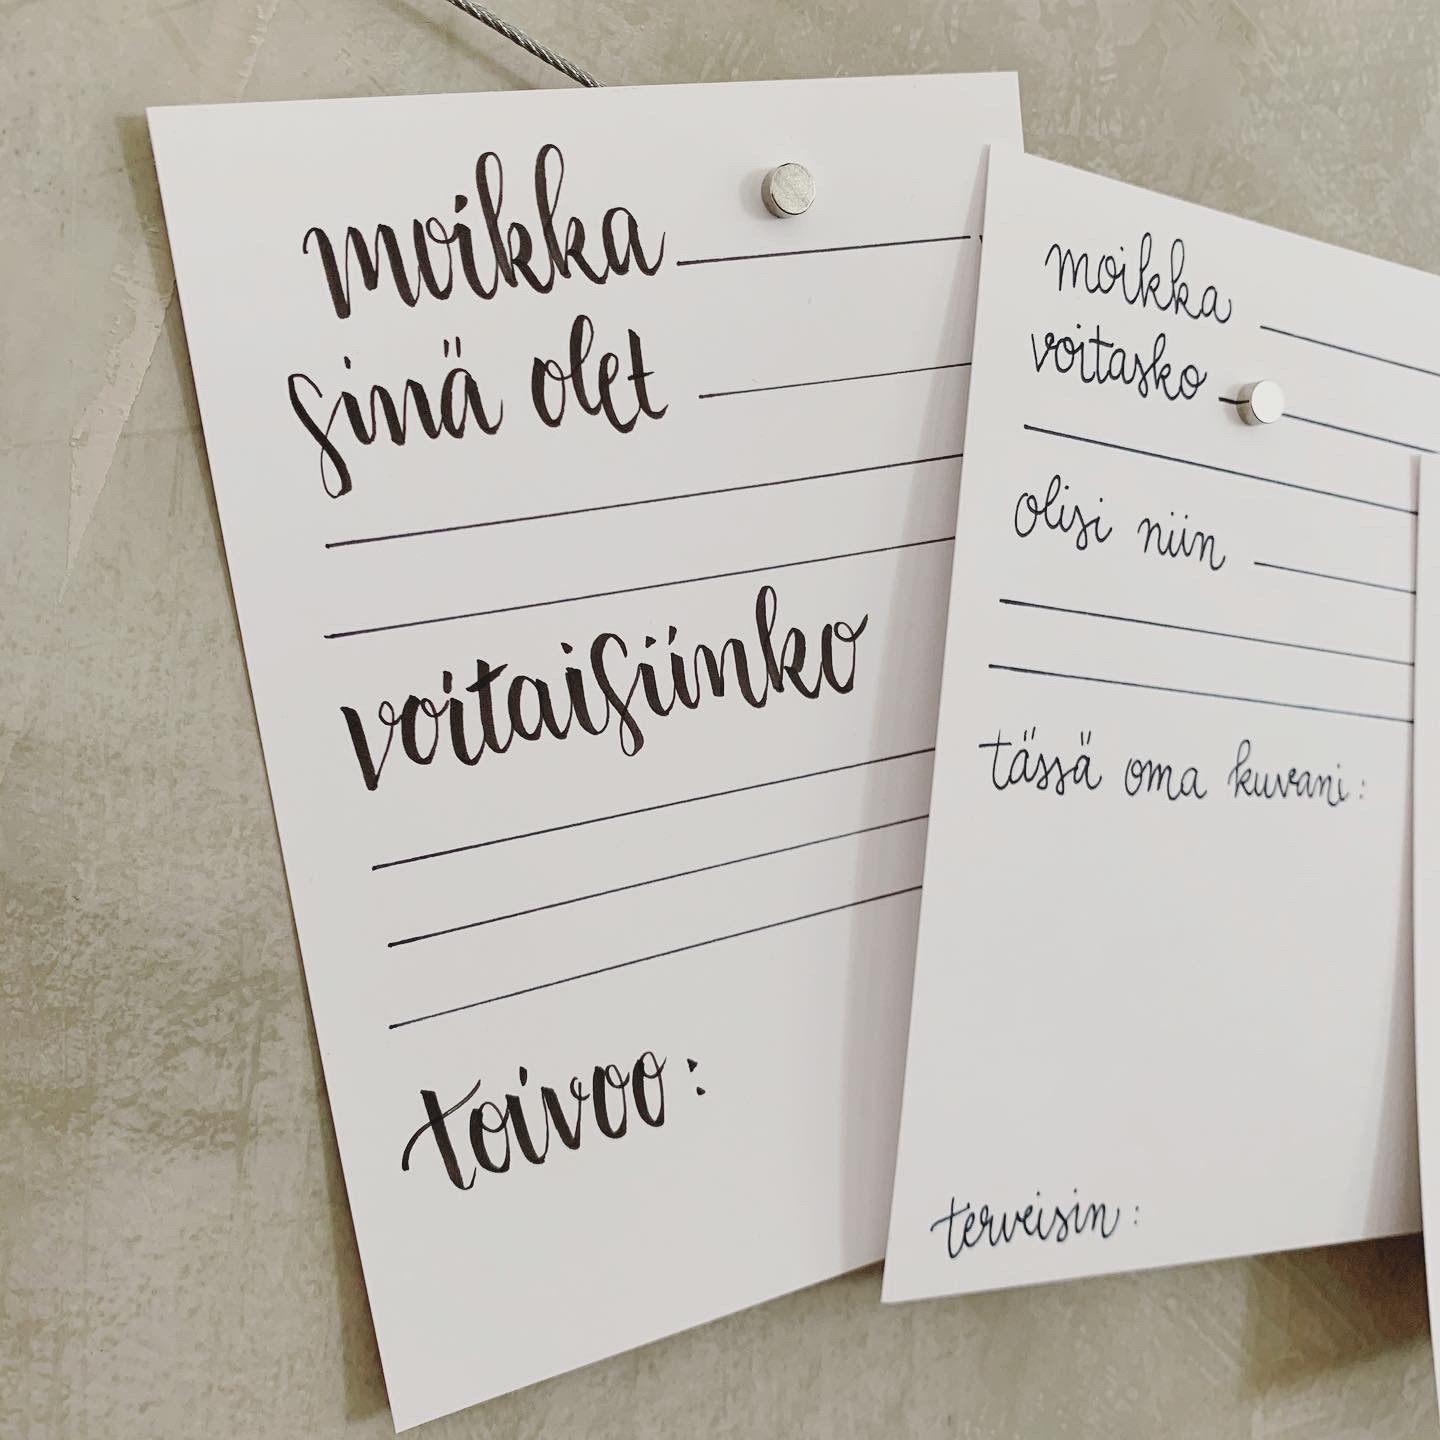 moikka
sinä olet
voitaisiinko
toivoo:
moikka
voitasko
olisi niin
tässä oma kuvani:
terveisin: